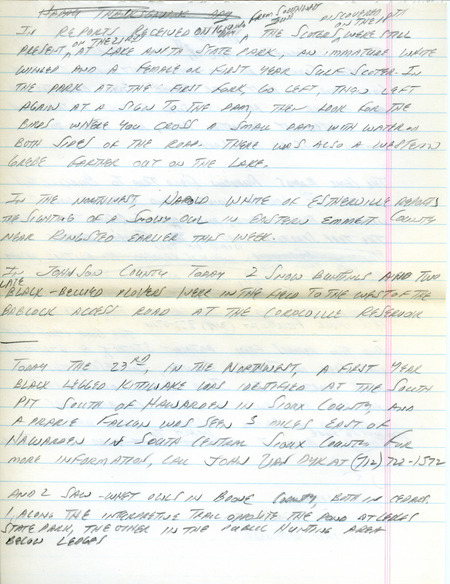 Happy Thanksgiving Day
discovered on the 19th
In reports received on from the scoters were still
present on the 21st at Lake Anita State Park, an immature white
winged and a female or first year surf scoter. In
the park at the first fork, go left, then left
again at a sign to the dam, then look for the
birds where you cross a small dam with water on
both sides of the road. There was also a western
grebe farther out on the lake.
In the northwest, Harold White of Estherville reports
the sighting of a snowy owl in eastern Emmet County
near Ringsted earlier this week.
In Johnson County today 2 snow buntings and two
late
black-bellied plovers were in the field to the west of the
Babcock access road at the Coralville Reservoir
Today the 23rd, in the northwest, a first year
black legged kittiwake was identified at the south
pit south of Hawarden in Sioux County, and
a prairie falcon was seen 3 miles east of
Hawarden in south central Sioux County. For
more information, call John Van Dyk at (712) 722-1572
And 2 saw-whet owls in Boone County, both in cedars.
1 along the interpretive trail opposite the pond at Ledges
State Park, the other in the public hunting area
below Ledges